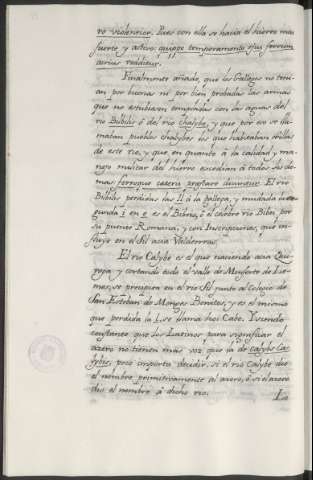 ro violentior. Pues con ella se hacia el hierro mas
fuerte, y activo: quippe temperamento ejus ferrum
acrius redditur.
Finalmente añade, que los Gallegos no tenian
por buenas ni por bien probadas las armas
que no estubiesen templadas con las aguas del
rio Bilbilis ô del rio Chalybe, y que por eso se llamaban
pueblos Chalybes los que habitaban orillas
de este rio, y que en quanto à la calidad, y manejo
militar del hierro excedian à todos los demas:
ferroque cæteris præstare dicuntur. El rio
Bilbilis perdidas las ll à la gallega, y mudada la segunda
i en e es el Bibei, ô el celebre rio Bibei, por
su puente Romana, y con Inscripciones, que influye
en el Sil acia Valdeorras.
El rio Calybe es el que naciendo acia Cauroja
y cortando todo el Valle de Monforte de Lemos,
se precipita en el rio Sil junto al Colegio de
San Esteban de Monges Benitos, y es el mismo
que perdida la l, se llama hoi Cabe. Y siendo
constante que los Latinos para significar el
azero no tienen mas voz que la de calybs calybis;
poco importa decidir, si el rio Calybe dio
el nombre primitivamente al azero, ô si el azero
dio el nombre à dicho rio.